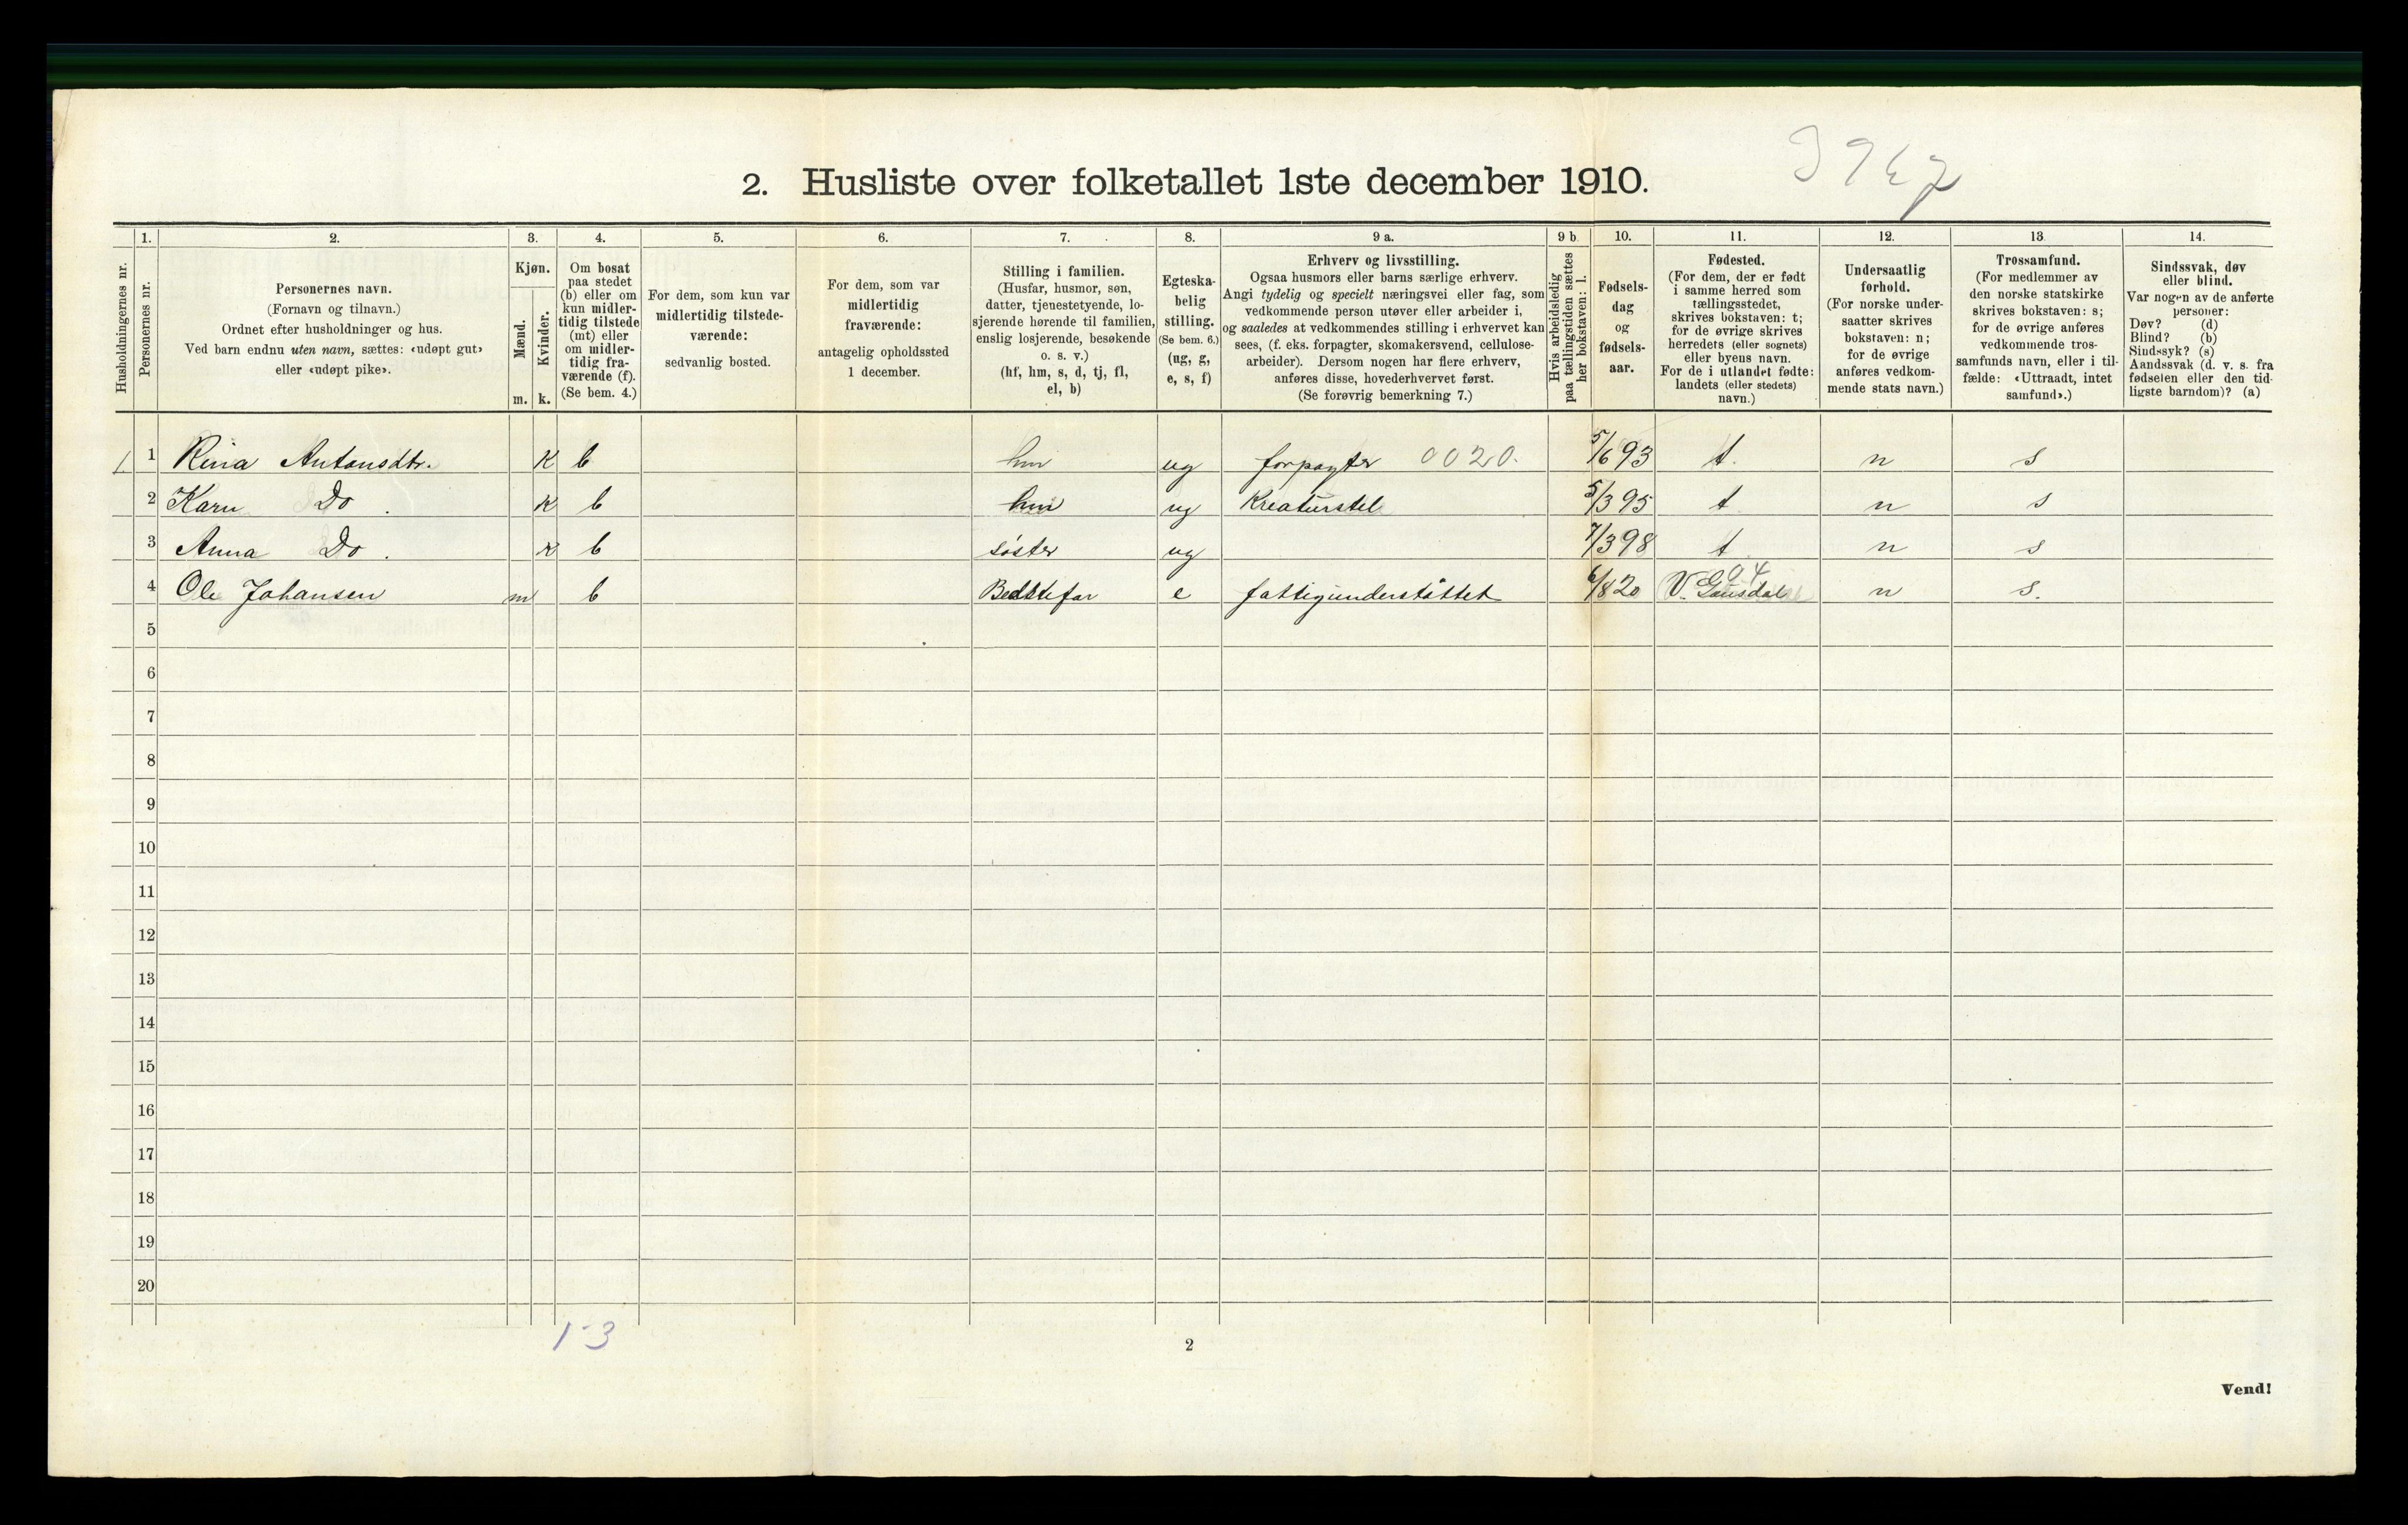 2. Husliste over folketallet 1ste december 1910.
Husholdningernes nr.
1.
Personernes nr.
2.
Personernes navn.
(Fornavn og tilnavn.)
Ordnet efter husholdninger og hus.
Ved barn endnu uten navn, sættes: «udøpt gut»
eller «udøpt pike».
3.
Kjøn.
Mænd.
Kvinder.
m. k.
4.
Om bosat
paa stedet
(b) eller om
kun midler-
tidig tilstede
(mt) eller
om midler-
tidig fra-
værende (f).
(Se bem. 4.)
5.
For dem, som kun var
midlertidig tilstede-
værende:
sedvanlig bosted.
6.
For dem, som var
midlertidig
fraværende:
antagelig opholdssted
1 december.
7.
Stilling i familien.
(Husfar, husmor, søn,
datter, tjenestetyende, lo-
sjerende hørende til familien,
enslig losjerende, besøkende
o. s. v.)
(hf, hm, s, d, tj, fl,
el, b)
8.
Egteska-
belig
stilling.
(Se bem. 6.)
(ug, g,
e, s, f)
9 a.
Erhverv og livsstilling.
Ogsaa husmors eller barns særlige erhverv.
Angi tydelig og specielt næringsvei eller fag, som
vedkommende person utøver eller arbeider i,
og saaledes at vedkommendes stilling i erhvervet kan
sees, (f. eks. forpagter, skomakersvend, cellulose-
arbeider). Dersom nogen har flere erhverv,
anføres disse, hovederhvervet først.
(Se forøvrig bemerkning 7.)
9 b
Hvis arbeidsledig
paa tællingstiden sættes
her bokstaven: l.
10.
Fødsels-
dag
og
fødsels-
aar.
11.
Fødested.
(For dem, der er født
i samme herred som
tællingsstedet,
skrives bokstaven: t;
for de øvrige skrives
herredets (eller sognets)
eller byens navn.
For de i utlandet fødte:
landets (eller stedets)
navn.)
12.
Undersaatlig
forhold.
(For norske under-
saatter skrives
bokstaven: n;
for de øvrige
anføres vedkom-
mende stats navn.)
13.
Trossamfund.
(For medlemmer av
den norske statskirke
skrives bokstaven: s;
for de øvrige anføres
vedkommende tros-
samfunds navn, eller i til-
fælde: «Uttraadt, intet
samfund».)
14.
Sindssvak, døv
eller blind.
Var nogen av de anførte
personer:
Døv? (d)
Blind? (b)
Sindssyk? (s)
Aandssvak (d. v. s. fra
fødselen eller den tid-
ligste barndom)? (a)
1 1 Rina Antonsdtr. K b hm ug forpagter 0020. 5/6 93 t. n s
2 Karn Do . K b ug Kreaturstel 5/3 95 t n s
3 Anna Do . K b søster ug 7/3 98 t n s
4 Ole Johansen m b Bedstefar e fattigunderståttet 6/8 20 V. Gausdal n s.
5
6
7
8
9
10
11
12
13
14
15
16
17
18
19
20
1-3
2
Vend!